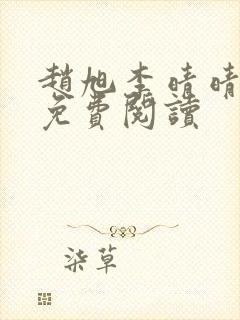 趙旭李晴晴
免費閱讀
柒草